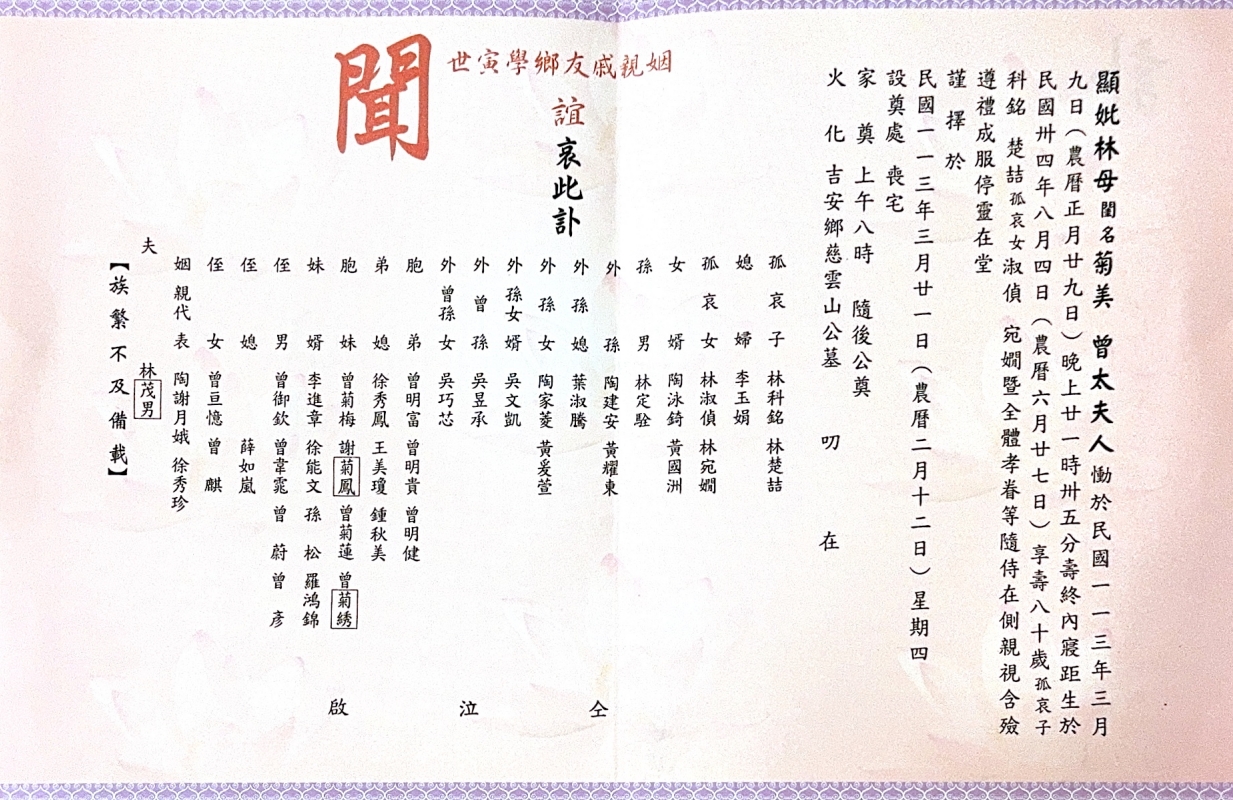 顯妣林母閨名菊美 曾太夫人慟於民國一一三年三月
九日（農曆正月廿九日）晚上廿一時卅五分壽終內寢距生於
民國卅四年八月四日（農曆六月廿七日）享壽八十歲孤哀子
科銘 楚喆孤哀女淑偵 宛嫺暨全體孝眷等隨侍在側親視含殮
遵禮成服停靈在堂
謹擇於
民國一一三年三月廿一日（農曆二月十二日）星期四
設奠處 喪宅
家奠 上午八時 隨後公奠
火化 吉安鄉慈雲山公墓 叨在
姻親戚友鄉學寅世
誼哀此訃
聞
孤哀子 林科銘 林楚喆
媳婦 李玉娟
孤哀女 林淑偵 林宛嫺
女婿 陶泳錡 黃國洲
孫男 林定駩
外孫 陶建安 黃耀東
外孫媳 葉淑騰
外孫女 陶家菱 黃爰萱
外孫女婿 吳文凱
外曾孫 吳昱承
外曾孫女 吳巧芯
胞弟 曾明富 曾明貴 曾明健
弟媳 徐秀鳳 王美瓊 鍾秋美
胞妹 曾菊梅 謝菊鳳 曾菊蓮 曾菊綉
妹婿 李進章 徐能文 孫松 羅鴻錦
侄男 曾御欽 曾韋霓 曾蔚 曾彥
侄媳 薛如嵐
侄女 曾亘憶 曾麒
姻親代表 陶謝月娥 徐秀珍
夫 林茂男
【族繁不及備載】
仝泣啟